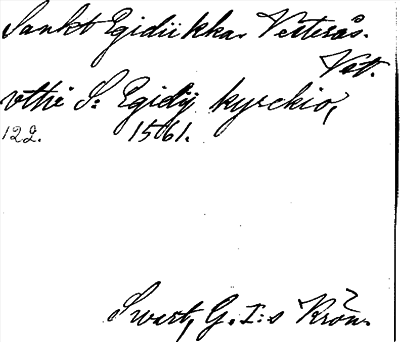 Sankt Egidii kka. Vesterås.
Vstm.
vthi S: Egidij kyrckio,
122. 1561.
Swart, G. I:s Krön.